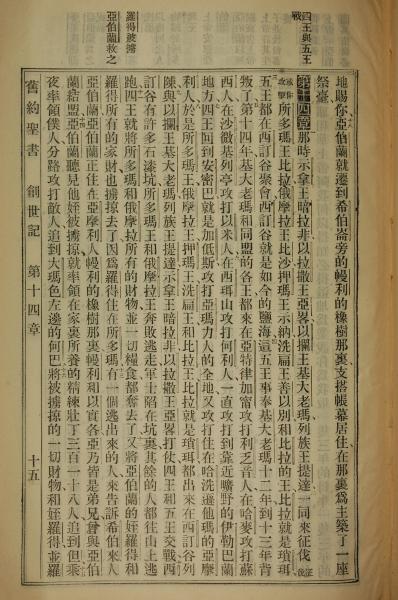 四王與五王
戰
羅得被擄
亞伯蘭救之
地賜你亞伯蘭就遷到希伯崙旁的幔利的橡樹那裏支搭帳幕居住在那裏爲主築了一座
祭臺
第十四章 那時示拿王暗拉非以拉撒王亞畧以攔王基大老瑪列族王提達一同來征伐
所多瑪王比拉俄摩拉王比沙押瑪王示納洗扁王善以別和比拉的王比拉就是瑣珥
五王都在西訂谷聚會西訂谷就是如今的鹽海這五王事奉基大老瑪十二年到十三年背
叛了第十四年基大老瑪和同盟的各王都來在亞特律加甯攻打利乏音人在哈麥攻打蘇
西人在沙微基列亭攻打以米人在西珥山攻打何利人一直攻打到靠近曠野的伊勒巴蘭
地方四王回到安密巴就是加低斯攻打亞瑪力人的全地又攻打住在哈洗遜他瑪的亞摩
利人於是所多瑪王俄摩拉王押瑪王洗扁王和比拉王比拉就是瑣珥都出來在西訂谷列
陳與以攔王基大老瑪列族王提達示拿王暗拉非以拉撒王亞畧打仗四王和五王交戰西
訂谷有許多石漆坑所多瑪王和俄摩拉王奔敗逃走軍士陷在坑裏其餘的人都往山上逃
跑四王就將所多瑪和俄摩拉所有的財物並一切糧食都奪去了又將亞伯蘭的姪羅得和
羅得所有的家財也擄掠去了因爲羅得住在所多瑪有一個逃出來的人來告訴希伯來人
亞伯蘭亞伯蘭正住在亞摩利人幔利的橡樹那裏幔利和以實各亞乃皆是弟兄曾與亞伯
蘭結盟亞伯蘭聽見他姪被擄掠就率領在家裏所養的精練壯丁三百一十八人追到但乘
夜率領僕人分路攻打敵人追到大瑪色左邊的何巴將被擄掠的一切財物和姪羅得並羅
舊約聖書 創世記 第十四章 十五